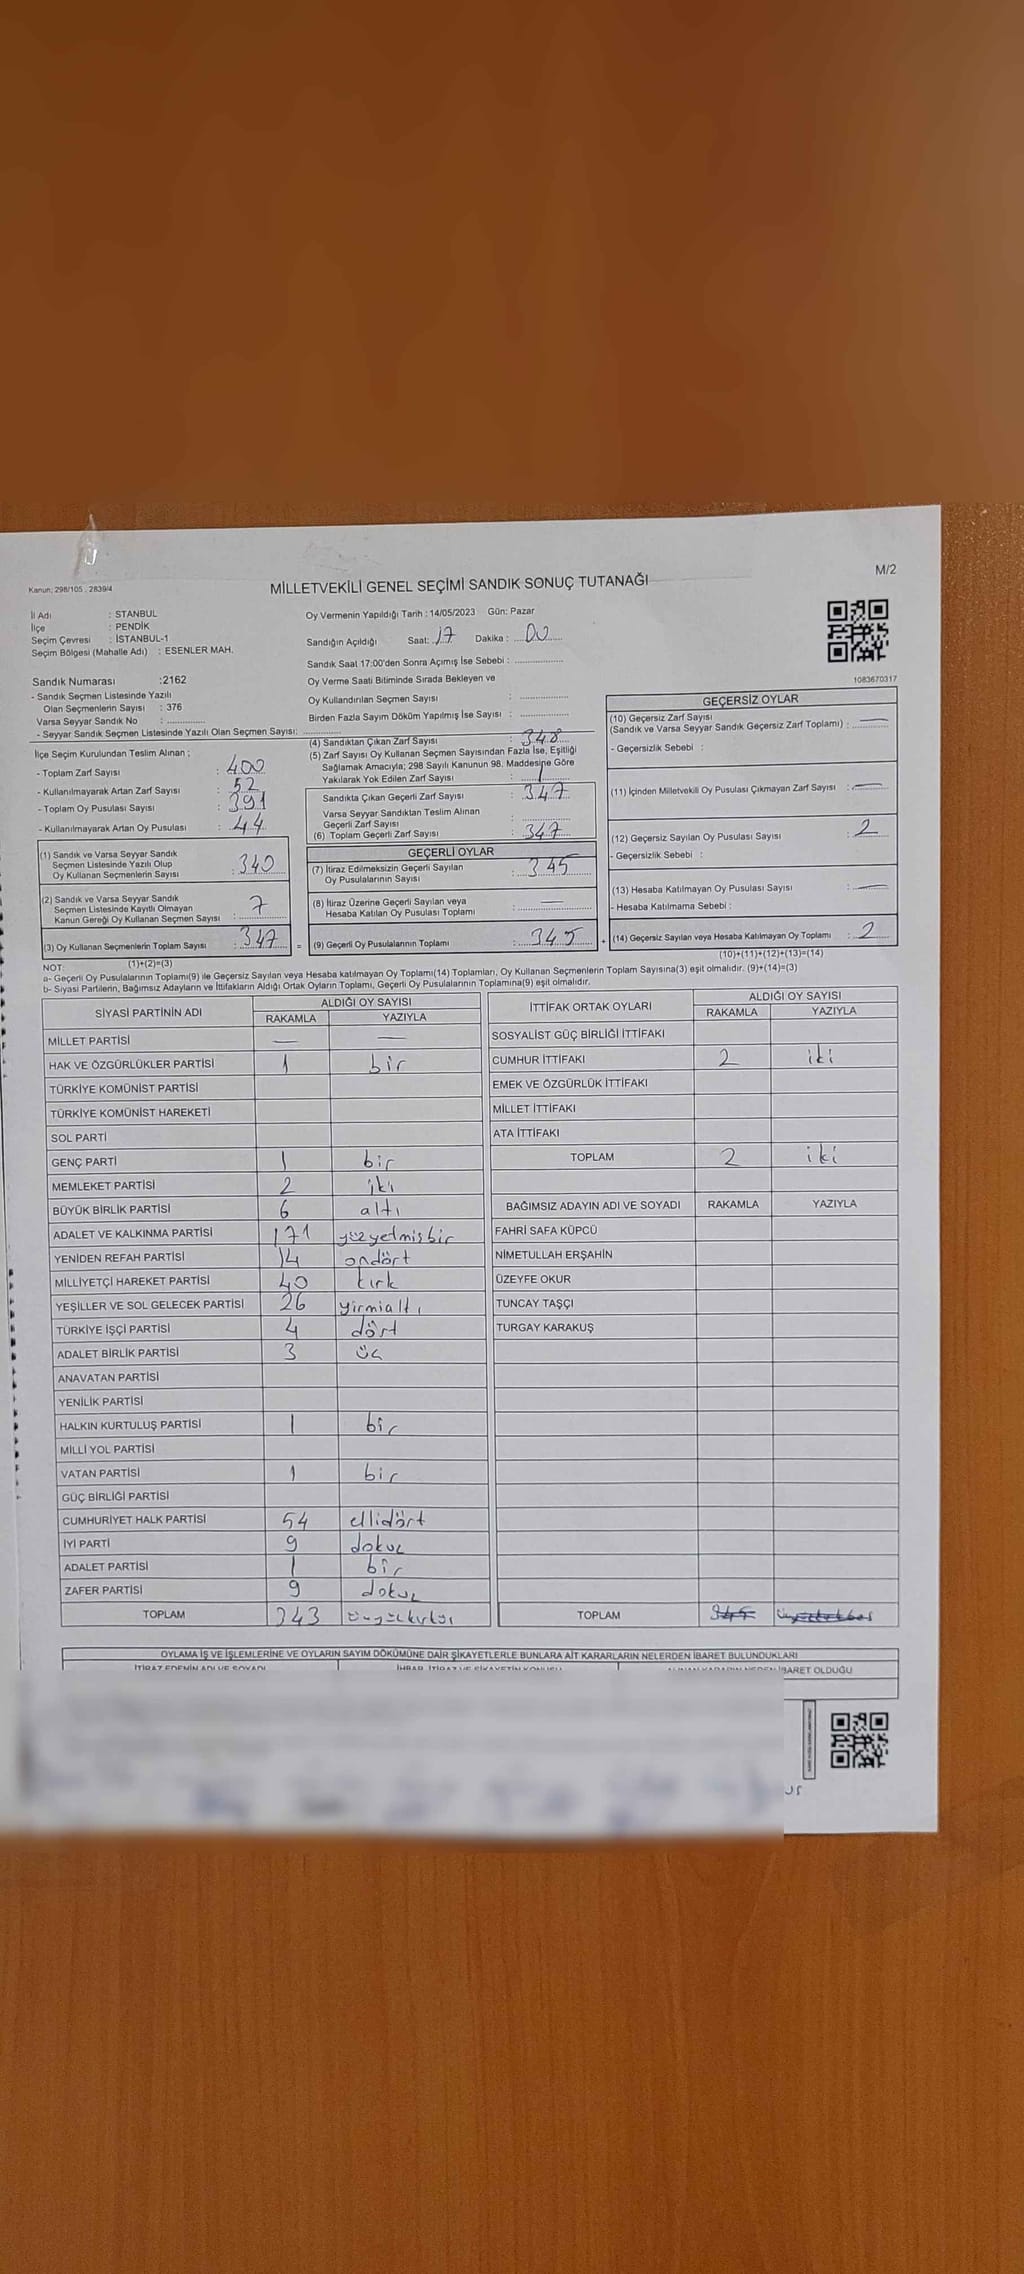 Kanun: 298/105 , 2839/4
MİLLETVEKİLİ GENEL SEÇİMİ SANDIK SONUÇ TUTANAĞI
M/2
İl Adı : STANBUL
İlçe : PENDİK
Seçim Çevresi : İSTANBUL-1
Seçim Bölgesi (Mahalle Adı) : ESENLER MAH.
Oy Vermenin Yapıldığı Tarih : 14/05/2023 Gün: Pazar
Sandığın Açıldığı Saat: 17 Dakika : 00
Sandık Saat 17:00'den Sonra Açımış İse Sebebi :
Sandık Numarası :2162
- Sandık Seçmen Listesinde Yazılı
Olan Seçmenlerin Sayısı : 376
Varsa Seyyar Sandık No :
- Seyyar Sandık Seçmen Listesinde Yazılı Olan Seçmen Sayısı:
Oy Verme Saati Bitiminde Sırada Bekleyen ve
Oy Kullandırılan Seçmen Sayısı :
Birden Fazla Sayım Döküm Yapılmış İse Sayısı :
1083670317
İlçe Seçim Kurulundan Teslim Alınan ;
- Toplam Zarf Sayısı : 400
- Kullanılmayarak Artan Zarf Sayısı : 52
- Toplam Oy Pusulası Sayısı : 391
- Kullanılmayarak Artan Oy Pusulası : 44
(1) Sandık ve Varsa Seyyar Sandık
Seçmen Listesinde Yazılı Olup
Oy Kullanan Seçmenlerin Sayısı : 340
(2) Sandık ve Varsa Seyyar Sandık
Seçmen Listesinde Kayıtlı Olmayan
Kanun Gereği Oy Kullanan Seçmen Sayısı : 7
(3) Oy Kullanan Seçmenlerin Toplam Sayısı : 347 =
(1)+(2)=(3)
(4) Sandıktan Çıkan Zarf Sayısı : 348
(5) Zarf Sayısı Oy Kullanan Seçmen Sayısından Fazla İse, Eşitliği
Sağlamak Amacıyla; 298 Sayılı Kanunun 98. Maddesine Göre
Yakılarak Yok Edilen Zarf Sayısı : 1
Sandıkta Çıkan Geçerli Zarf Sayısı : 347
Varsa Seyyar Sandıktan Teslim Alınan
Geçerli Zarf Sayısı :
(6) Toplam Geçerli Zarf Sayısı : 347
GEÇERLİ OYLAR
(7) İtiraz Edilmeksizin Geçerli Sayılan
Oy Pusulalarının Sayısı : 345
(8) İtiraz Üzerine Geçerli Sayılan veya
Hesaba Katılan Oy Pusulası Toplamı : —
(9) Geçerli Oy Pusulalarının Toplamı : 345 +
GEÇERSİZ OYLAR
(10) Geçersiz Zarf Sayısı
(Sandık ve Varsa Seyyar Sandık Geçersiz Zarf Toplamı) : —
- Geçersizlik Sebebi :
(11) İçinden Milletvekili Oy Pusulası Çıkmayan Zarf Sayısı : —
(12) Geçersiz Sayılan Oy Pusulası Sayısı : 2
- Geçersizlik Sebebi :
(13) Hesaba Katılmayan Oy Pusulası Sayısı : —
- Hesaba Katılmama Sebebi :
(14) Geçersiz Sayılan veya Hesaba Katılmayan Oy Toplamı : 2
(10)+(11)+(12)+(13)=(14)
NOT:
a- Geçerli Oy Pusulalarının Toplamı(9) ile Geçersiz Sayılan veya Hesaba katılmayan Oy Toplamı(14) Toplamları, Oy Kullanan Seçmenlerin Toplam Sayısına(3) eşit olmalıdır. (9)+(14)=(3)
b- Siyasi Partilerin, Bağımsız Adayların ve İttifakların Aldığı Ortak Oyların Toplamı, Geçerli Oy Pusulalarının Toplamına(9) eşit olmalıdır.
SİYASİ PARTİNİN ADI ALDIĞI OY SAYISI
RAKAMLA YAZIYLA
MİLLET PARTİSİ — —
HAK VE ÖZGÜRLÜKLER PARTİSİ 1 bir
TÜRKİYE KOMÜNİST PARTİSİ
TÜRKİYE KOMÜNİST HAREKETİ
SOL PARTİ
GENÇ PARTİ 1 bir
MEMLEKET PARTİSİ 2 iki
BÜYÜK BİRLİK PARTİSİ 6 altı
ADALET VE KALKINMA PARTİSİ 171 yüzyetmişbir
YENİDEN REFAH PARTİSİ 14 ondört
MİLLİYETÇİ HAREKET PARTİSİ 40 kırk
YEŞİLLER VE SOL GELECEK PARTİSİ 26 yirmialtı
TÜRKİYE İŞÇİ PARTİSİ 4 dört
ADALET BİRLİK PARTİSİ 3 üç
ANAVATAN PARTİSİ
YENİLİK PARTİSİ
HALKIN KURTULUŞ PARTİSİ 1 bir
MİLLİ YOL PARTİSİ
VATAN PARTİSİ 1 bir
GÜÇ BİRLİĞİ PARTİSİ
CUMHURİYET HALK PARTİSİ 54 ellidört
İYİ PARTİ 9 dokuz
ADALET PARTİSİ 1 bir
ZAFER PARTİSİ 9 dokuz
TOPLAM 343 üçyüzkırküç
İTTİFAK ORTAK OYLARI ALDIĞI OY SAYISI
RAKAMLA YAZIYLA
SOSYALİST GÜÇ BİRLİĞİ İTTİFAKI
CUMHUR İTTİFAKI 2 iki
EMEK VE ÖZGÜRLÜK İTTİFAKI
MİLLET İTTİFAKI
ATA İTTİFAKI
TOPLAM 2 iki
BAĞIMSIZ ADAYIN ADI VE SOYADI RAKAMLA YAZIYLA
FAHRİ SAFA KÜPCÜ
NİMETULLAH ERŞAHİN
ÜZEYFE OKUR
TUNCAY TAŞÇI
TURGAY KARAKUŞ
TOPLAM 345
OYLAMA İŞ VE İŞLEMLERİNE VE OYLARIN SAYIM DÖKÜMÜNE DAİR ŞİKAYETLERLE BUNLARA AİT KARARLARIN NELERDEN İBARET BULUNDUKLARI
İTİRAZ EDENİN ADI VE SOYADI İHBAR, İTİRAZ VE ŞİKAYETİN KONUSU İBARET OLDUĞU